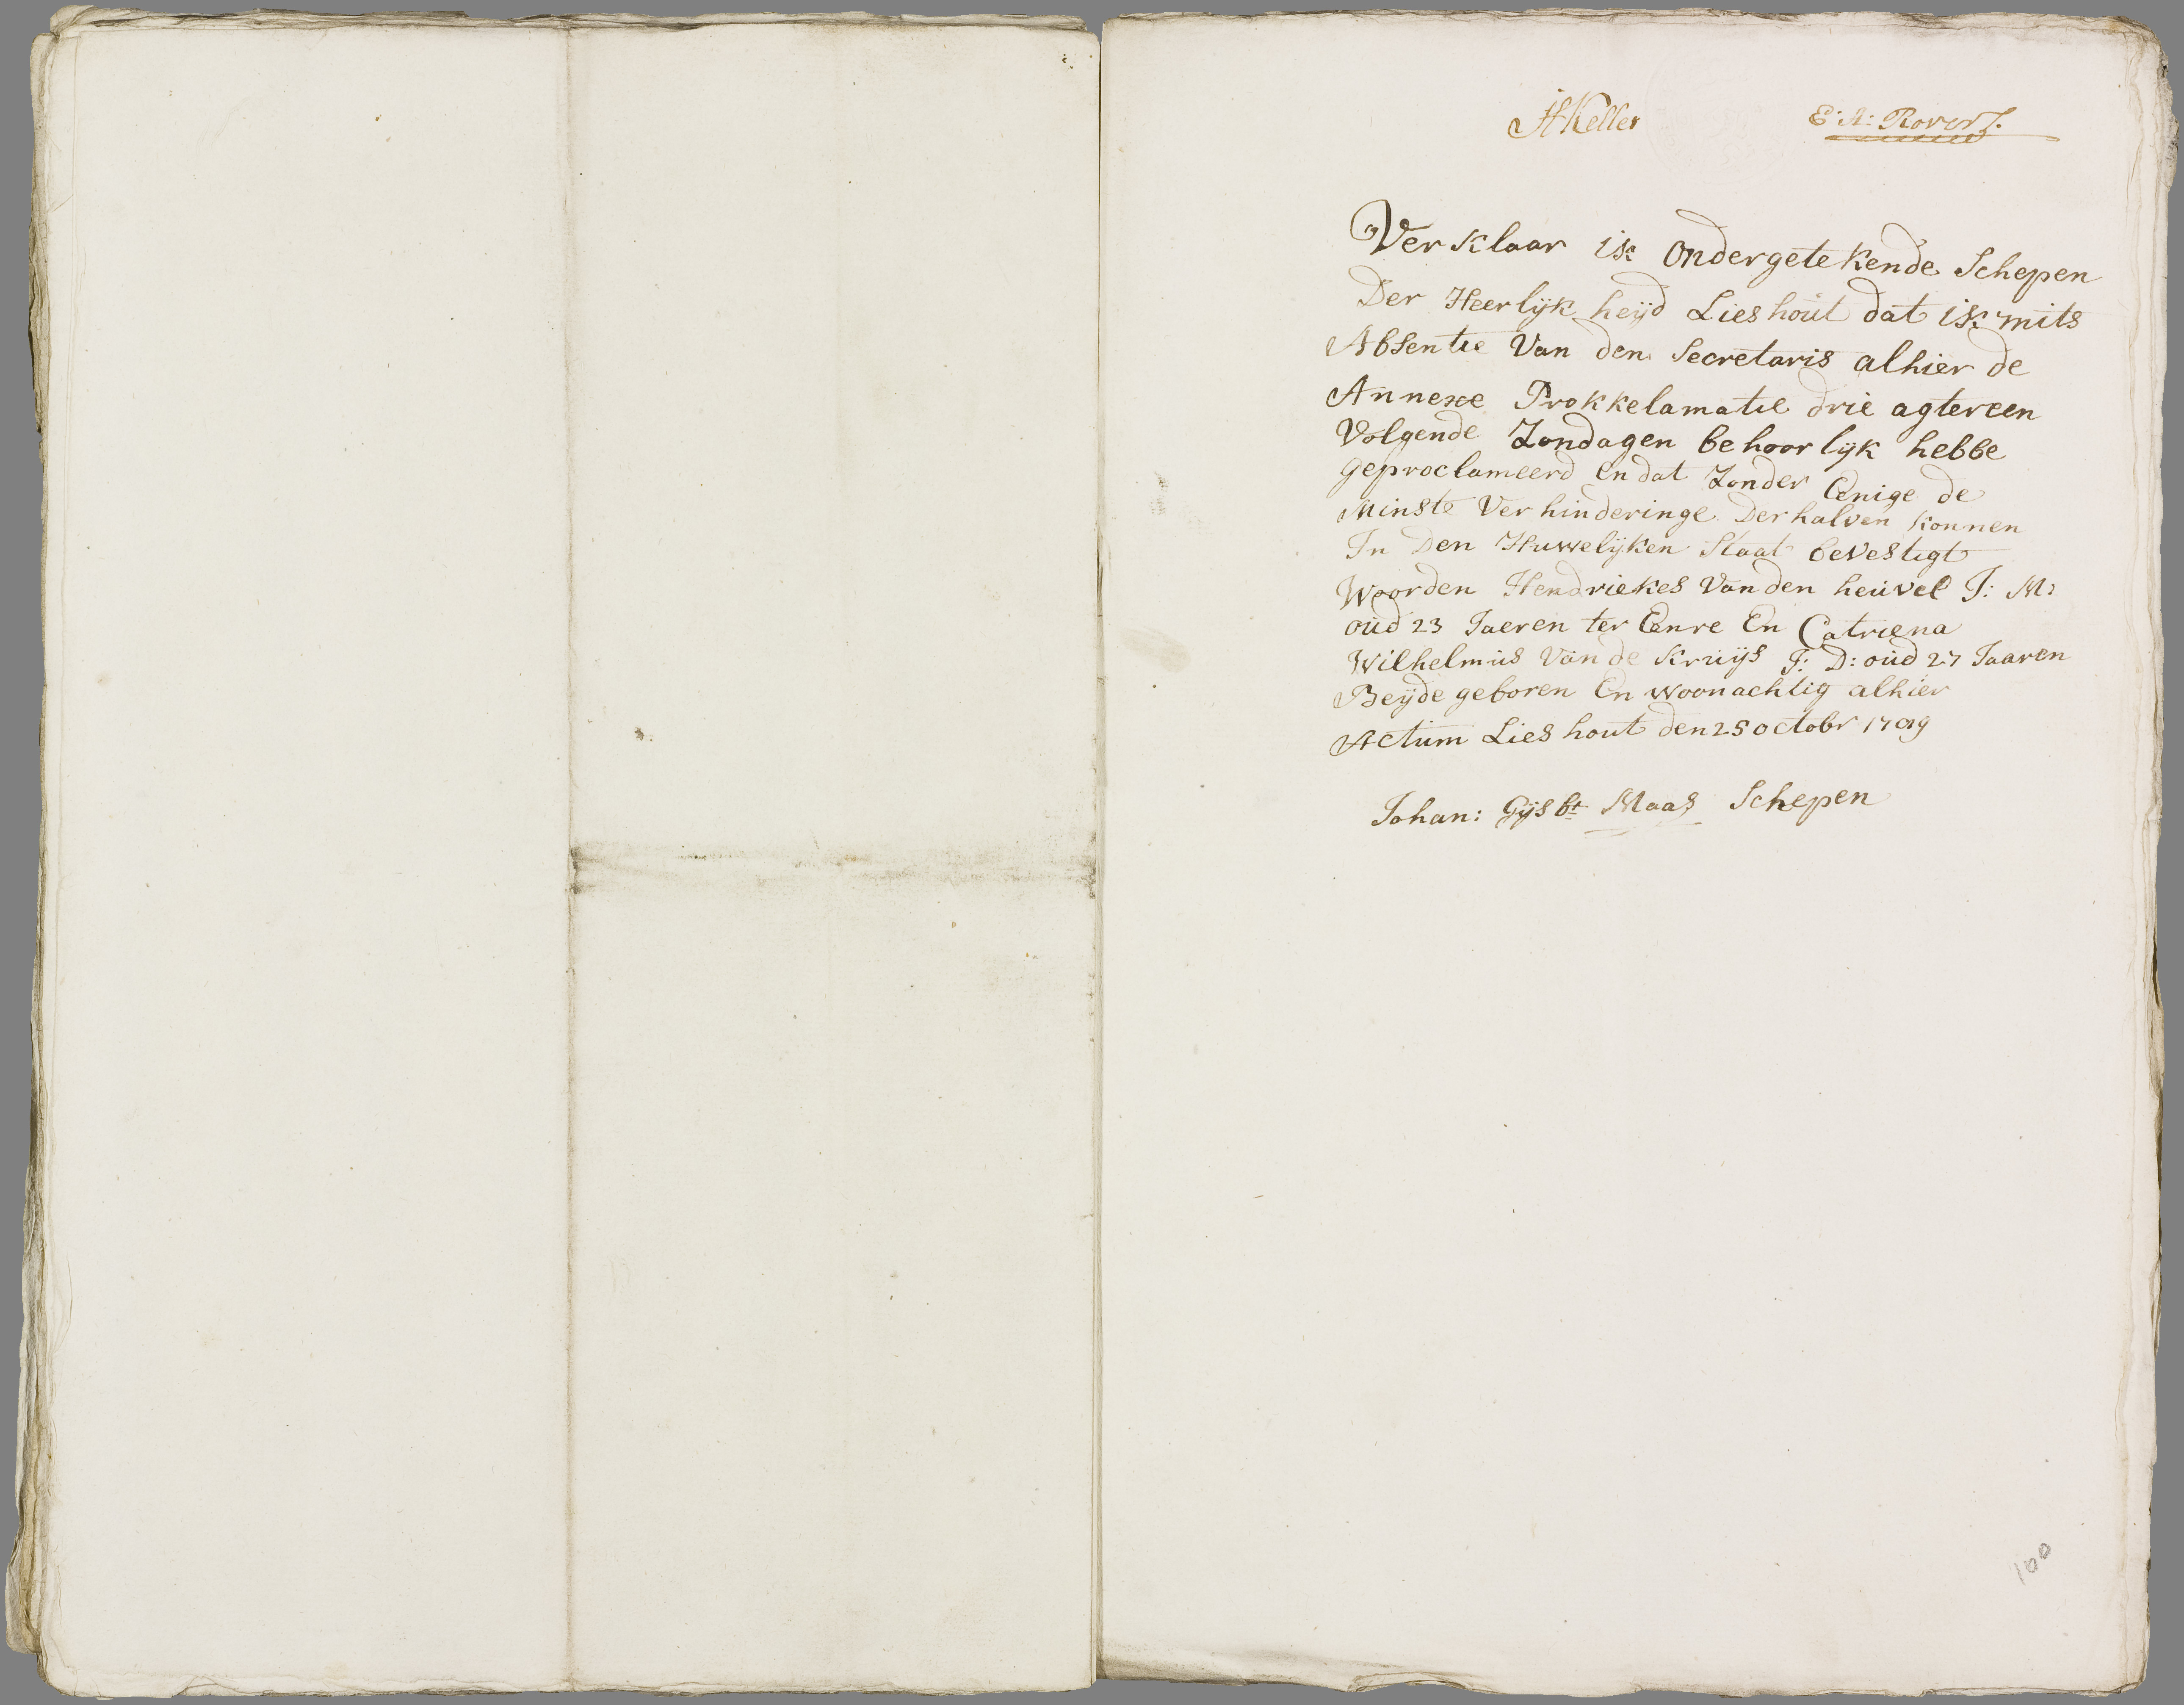 JHKeller E: A: Rovers.
Verklaar ik ondergetekende Schepen
Der Heerlijk heijd Lieshout dat ik mits
Absentie Van den Secretaris alhier de
Annexe Prokkelamatie drie agtereen
Volgende Zondagen behoorlijk hebbe
geproclameerd en dat Zonder Eenige de
Minste Verhinderinge Derhalven konnen
In Den Huwelijken Staat bevestigt
Woorden Hendriekes Van den heuvel J: M:
oud 23 Jaeren ter Eenre En Catriena
Wilhelmus Van de Kruijs J: D: oud 27 Jaaren
Beijde geboren En woonachtig alhier
Actum Lieshout den 25 octobr
Johan: Gijsbt Maas Schepen
100